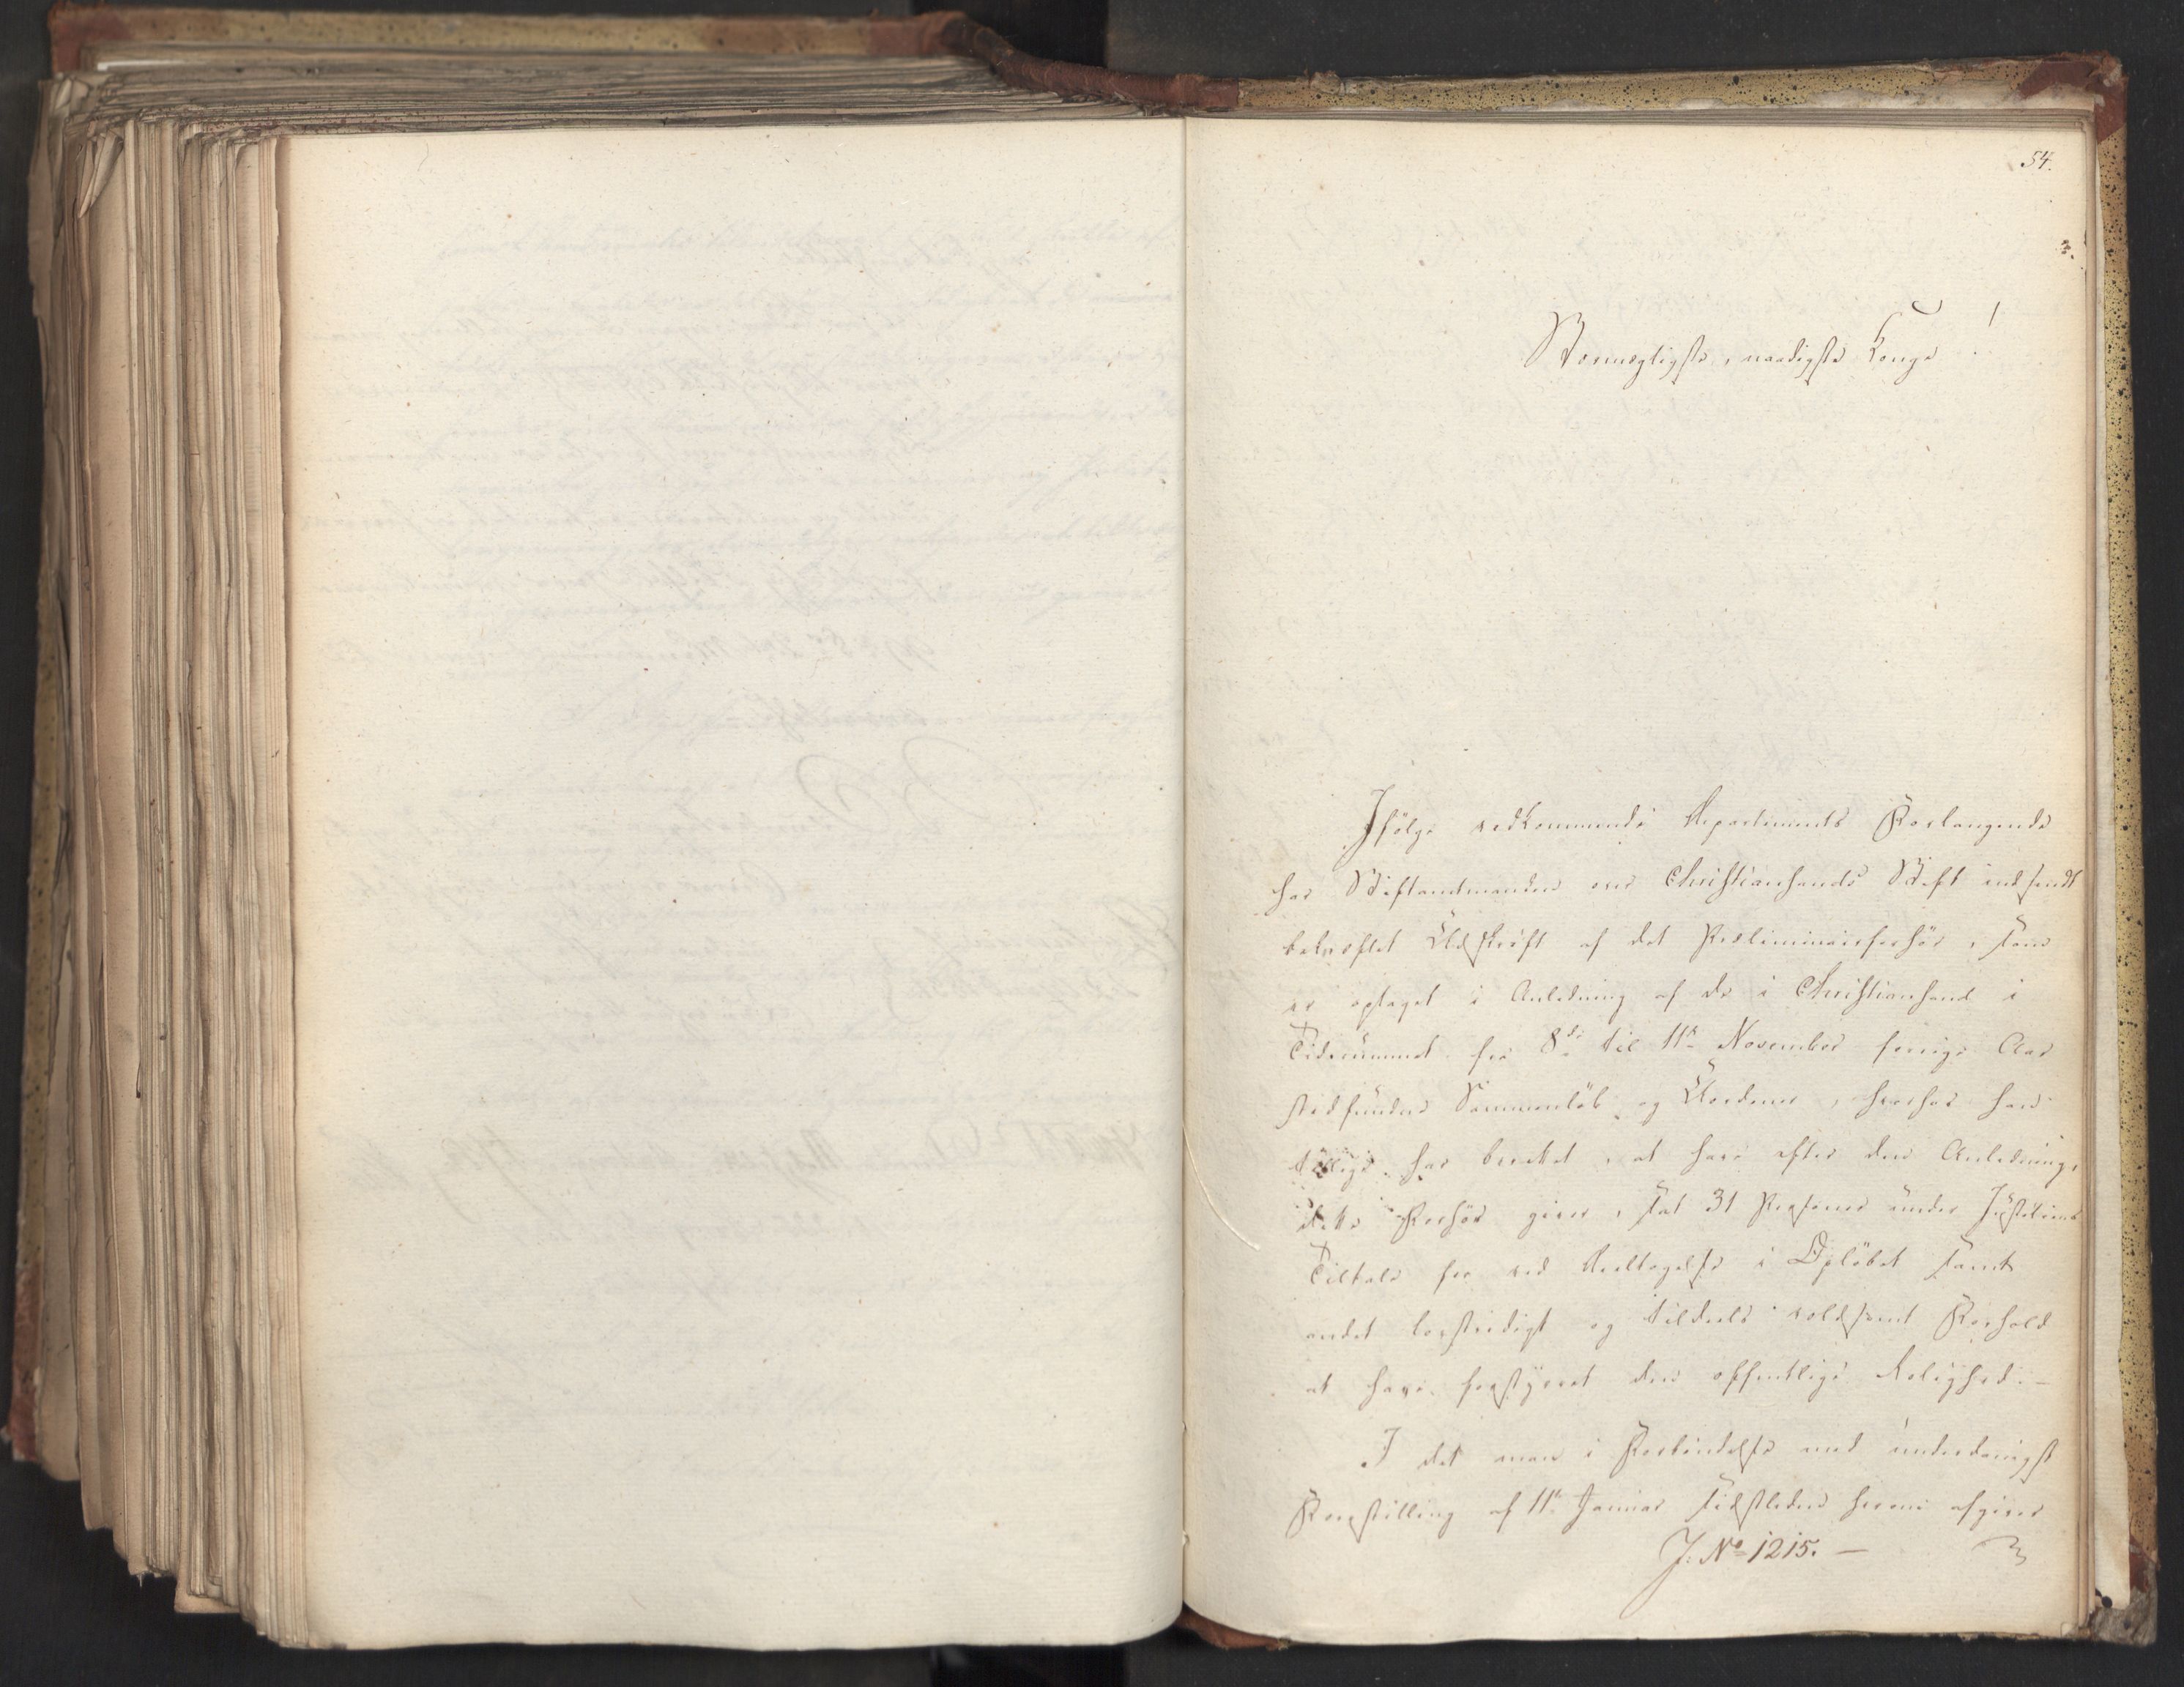 54.
3.
Stormægtigste, naadigste Konge!
Ifölge vedkommende Departements Forlangende
har Stiftamtmanden over Christiansands Stift indsendt
bekræftet Udskrift af det Præliminairforhör, som
er optaget i Anledning af de i Christiansand i
Tidsrummet fra 8de til 11te November forrige Aar
stedfundne Sammenlöb og Uordener, hvorhos han
tillige har berettet, at have efter den Anledning,
dette Forhör giver, sat 31 Personer under Justitiens
Tiltale for ved Deeltagelse i Oplöbet samt
andet lovstridigt og tildeels voldsomt Forhold
at have forstyrret den offentlige Rolighed. –
I det man i Forbindelse med underdanigst
Forestilling af 11te Januar sidstleden herom afgiver
J: No 1215. –